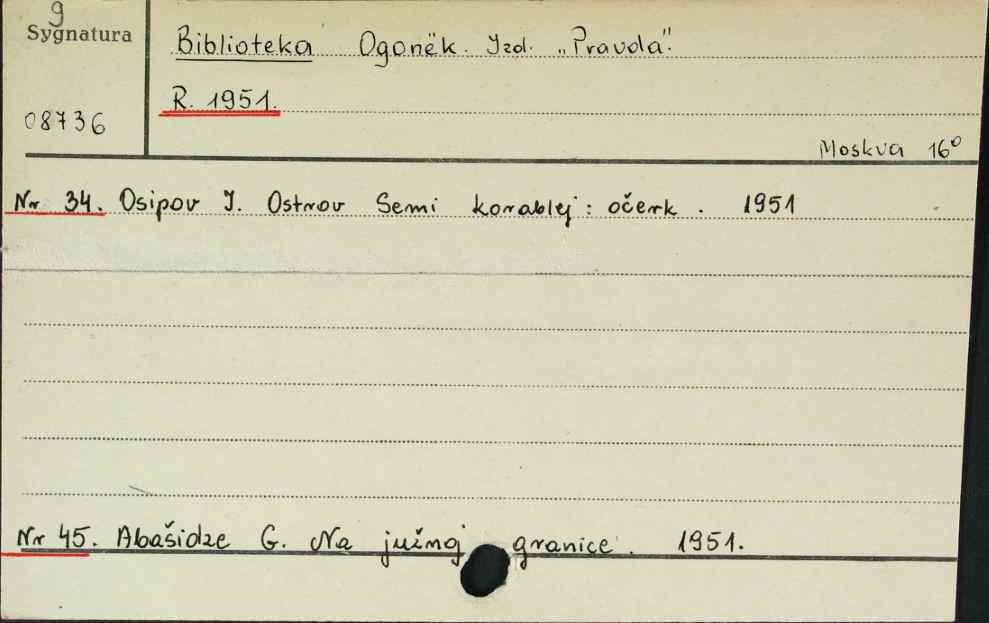 9
Sygnatura
Biblioteka Ogonëk. Izd. „Pravda".
R. 1951.
08736
Moskva 16°
Nr 34. Osipov I. Ostrov Semi korablej: očerk. 1951
Nr 45. Abašidze G. Na južnoj granice. 1951.